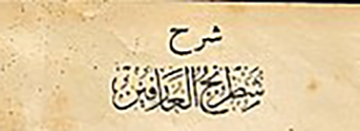 شرح
شطرنج العارفين